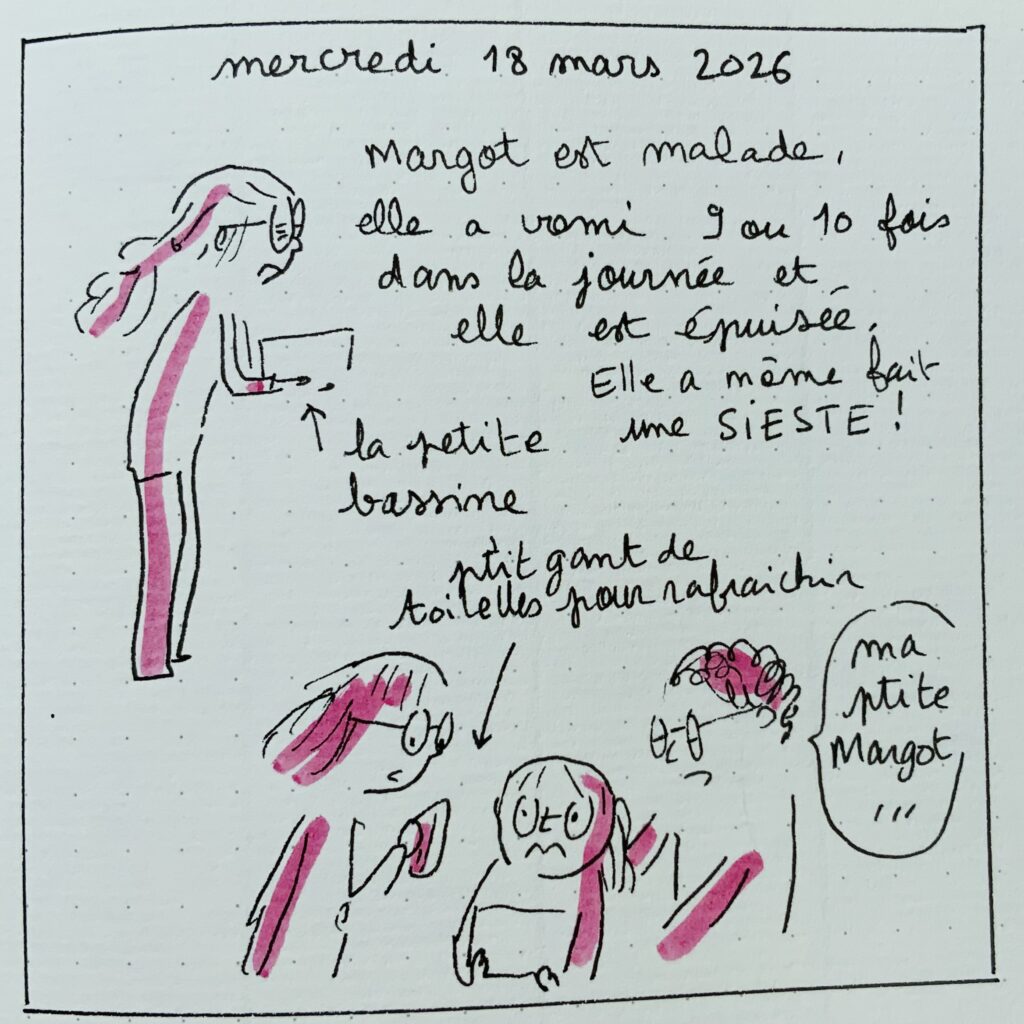 mercredi 18 mars 2026
Margot est malade,
elle a vomi 9 ou 10 fois
dans la journée et
elle est épuisée.
Elle a même fait
une SiESTE !
la petite
bassine
ptit gant de
toilettes pour rafraichir
ma
ptite
Margot
...